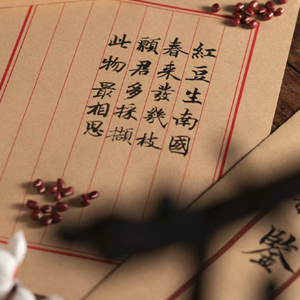 紅豆生南國
春来發幾枝
願君多採擷
此物最相思
鑒